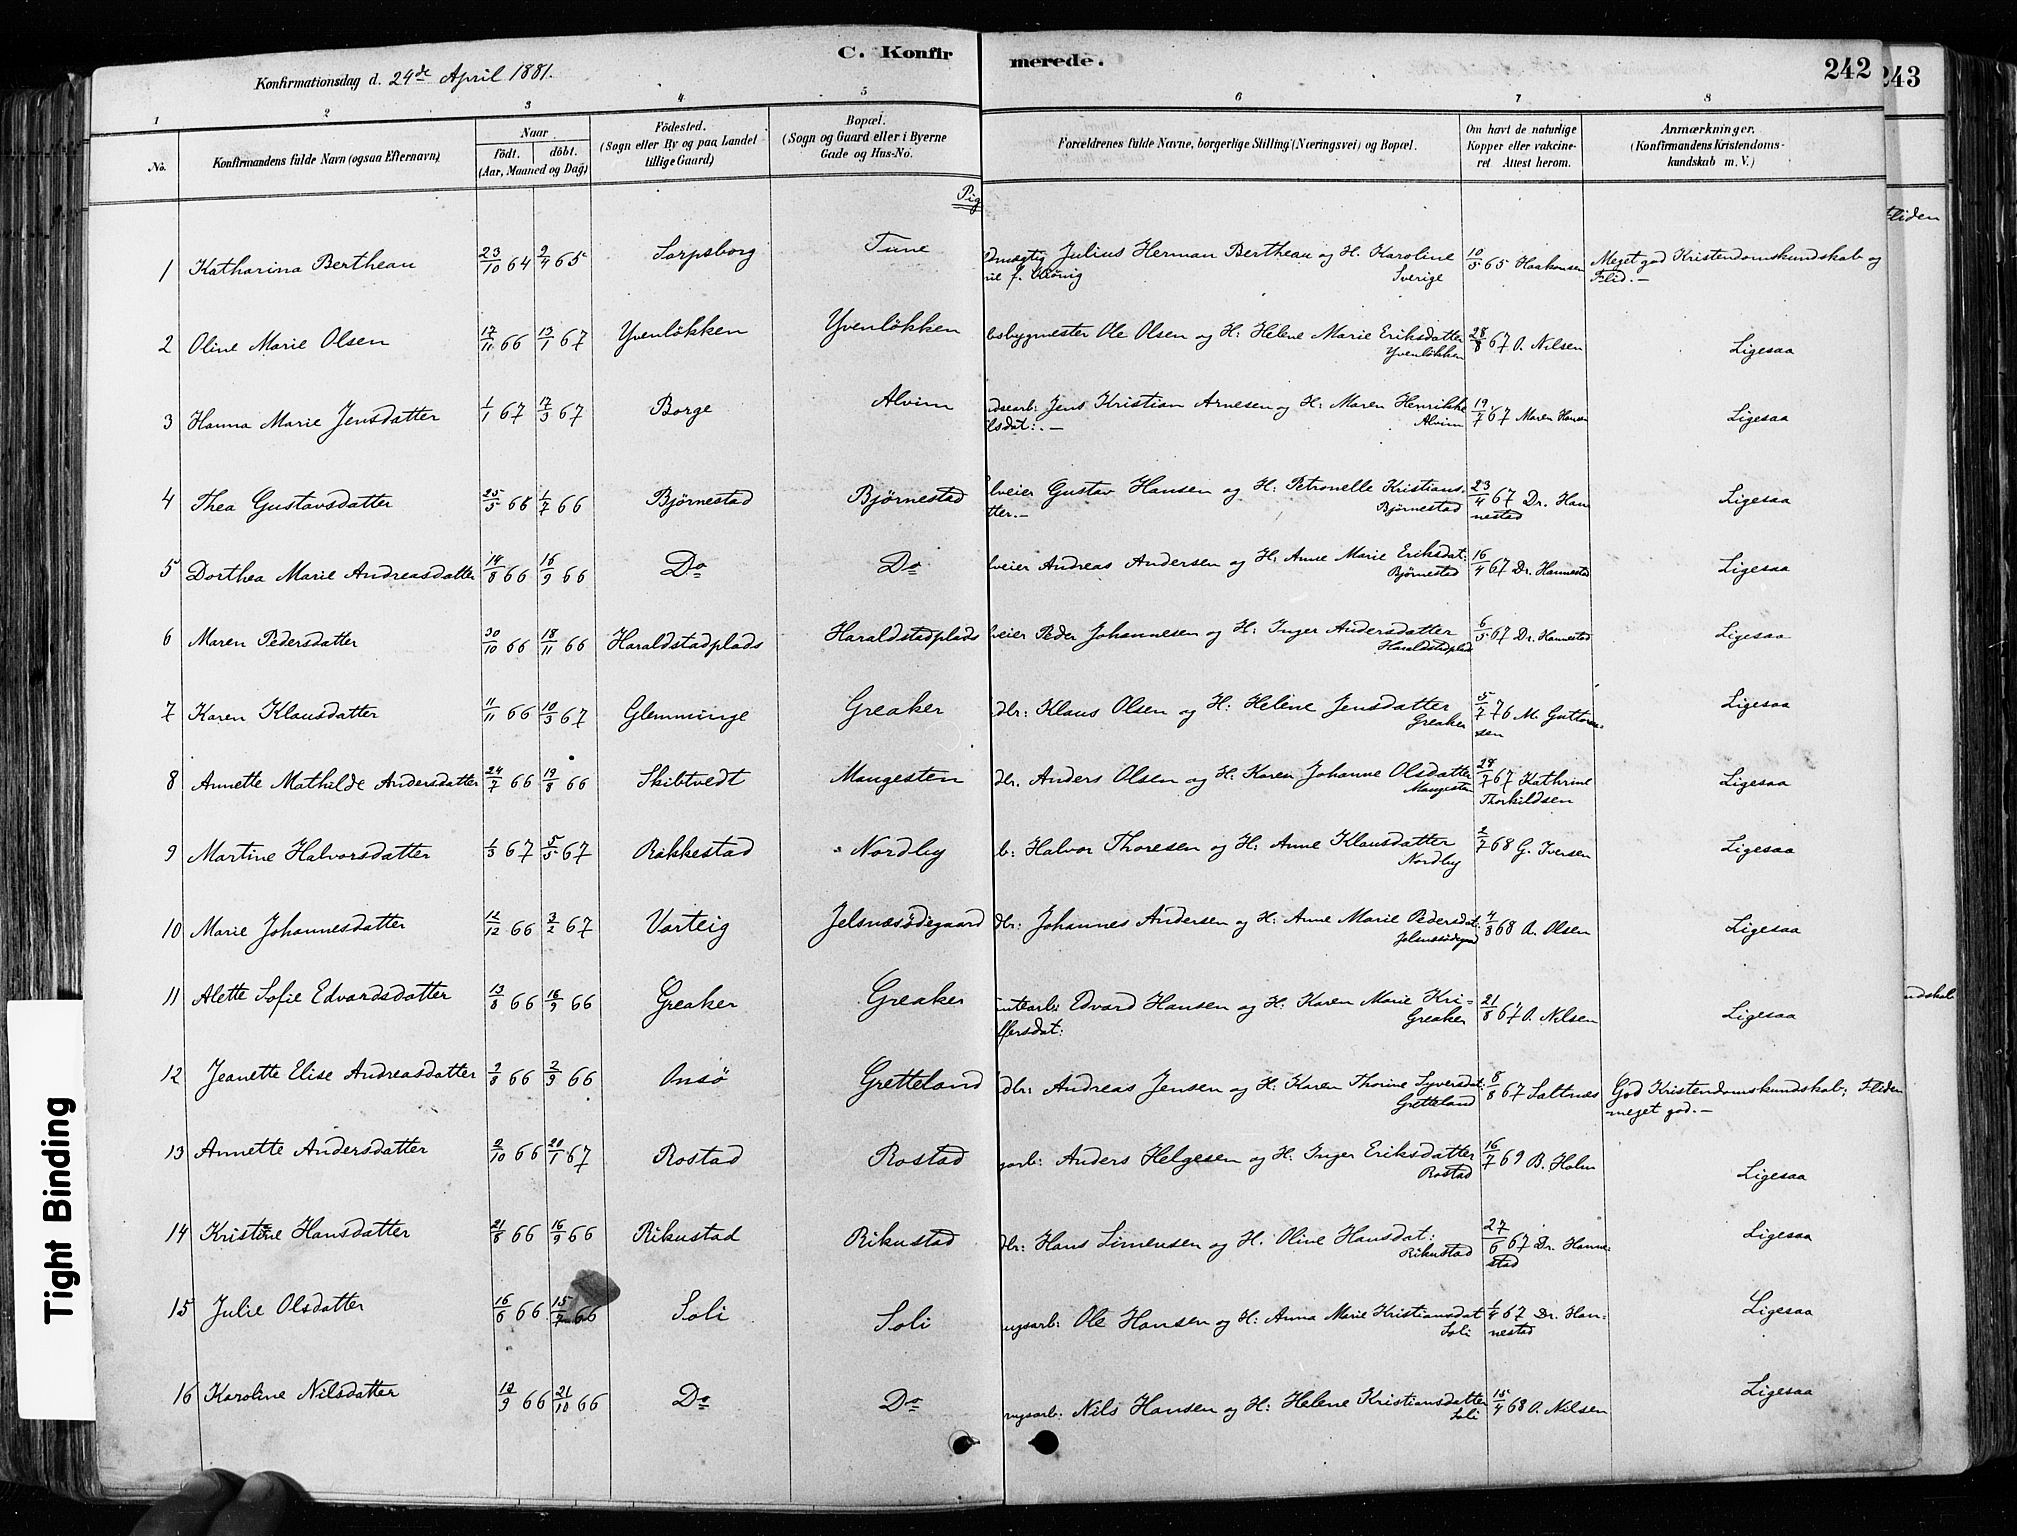 C. Konfir merede. 242 243
Konfirmationsdag d. 24de April 1881.
1 2 3 4 5 6 7 8
No. Konfirmandens fulde Navn (ogsaa Efternavn) Naar Födt. döbt. (Aar, Maaned og Dag) Födested. (Sogn eller By og paa Landet tillige Gaard) Bopæl. (Sogn og Gaard eller i Byerne Gade og Hus-No. Forældrenes fulde Navne, borgerlige Stilling (Næringsvei) og Bopæl. Om havt de naturlige Kopper eller vakcineret. Attest herom. Anmærkninger. (Konfirmandens Kristendomskundskab m. V.)
Pig
1 Katharina Bertheau 23/10 64 2/4 65 Sarpsborg Tune dmægtig Julius Herman Bertheau og H. Karoline 10/5 65 Haakonsen Meget god Kristendomskundskab og
Sverige Flid.—
2 Oline Marie Olsen 17/11 66 13/1 67 Yvenlökken Yvenlökken bsbygmester Ole Olsen og H: Helene Marie Eriksdatter 28/8 67 O. Nilsen Ligesaa
Yvenlökken
3 Hanna Marie Jensdatter 1/1 67 17/3 67 Borge Alvim dsearb: Jens Kristian Arnesen og H: Maren Henrikke 19/7 67 Maren Hansen Ligesaa
lsdat:.— Alvim
4 Thea Gustavsdatter 25/5 66 1/7 66 Bjørnestad Bjørnestad lveier Gustav Hansen og H: Petronelle Kristians- 23/4 67 Dr. Han Ligesaa
tter.— Bjørnestad nestad
5 Dorthea Marie Andreasdatter 14/8 66 16/9 66 Do Do lveier Andreas Andersen og H: Anne Marie Eriksdat: 16/4 67 Dr. Hannestad Ligesaa
Bjørnestad
6 Maren Pedersdatter 30/10 66 18/11 66 Haraldstadplads Haraldstadplads lveier Peder Johannesen og H: Inger Andersdatter 6/5 67 Dr. Hannestad Ligesaa
Haraldstadplads
7 Karen Klausdatter 11/11 66 10/3 67 Glemminge Greaker dlr: Klaus Olsen og H: Helene Jensdatter 5/7 76 M. Guttorm- Ligesaa
Greaker sen
8 Annette Mathilde Andersdatter 24/7 66 19/8 66 Skibtvedt Maugesten dlr. Anders Olsen og H. Karen Johanne Olsdatter 28/7 67 Kathrine Ligesaa
Maugesten Thorkildsen
9 Martine Halvorsdatter 1/3 67 5/5 67 Rakkestad Nordby b: Halvor Thoresen og H: Anne Klausdatter 2/7 68 G. Iversen Ligesaa
Nordby
10 Marie Johannesdatter 12/12 66 3/2 67 Varteig Jelsnæsödegaard dlr: Johannes Andersen og H: Anne Marie Pedersdat: 4/8 68 A. Olsen Ligesaa
11 Alette Sofie Edvardsdatter 13/8 66 16/9 66 Greaker Greaker mtearb: Edvard Hansen og H: Karen Marie Kri- 21/8 67 O. Nilsen Ligesaa
ffersdat: Greaker
12 Jeanette Elise Andreasdatter 9/8 66 2/9 66 Onsö Gretteland dlr: Andreas Jensen og H: Karen Thorine Syversdat: 8/8 67 Saltnæs God Kristendomskundskab; Fliden
Gretteland meget god.—
13 Annette Andersdatter 9/10 66 20/1 67 Rostad Rostad garb: Anders Helgesen og H: Inger Eriksdatter 16/7 69 B. Holm Ligesaa
Rostad
14 Kristine Hansdatter 21/8 66 16/9 66 Rikustad Rikustad dlr: Hans Simensen og H. Oline Hansdat: 27/6 67 Dr. Hanne- Ligesaa
Rikustad stad
15 Julie Olsdatter 16/6 66 15/7 66 Soli Soli ugsarb: Ole Hansen og H: Anna Marie Kristiansdat 1/4 67 Dr. Han- Ligesaa
Soli nestad
16 Karoline Nilsdatter 12/9 66 21/10 66 Do Do rugsarb: Nils Hansen og H: Helene Kristiansdatter 15/4 68 O. Nilsen Ligesaa
Soli
Fliden
ndskab
Tight Binding